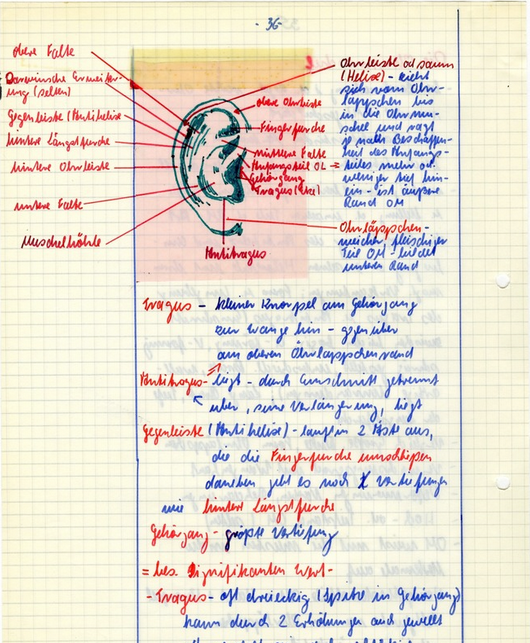 - 36 -
obere Falte
Darwinsche Erweiter-
ung (selten)
Gegenleiste (Antihelixe
hintere Längstfurche
hintere Ohrleiste
untere Falte
Muschelhöhle
obere Ohrleiste
Fingerfurche
mittlere Falte
Anfangsteil OL
Gehörgang
Tragus (Ecke)
Antitragus
Ohrleiste od saum
(Helixe) - zieht
sich vom Ohr-
läppchen bis
in die Ohrmu-
schel und ragt
je nach Beschaffen-
heit des Anfangs-
teiles mehr od.
weniger tief hin-
ein - ist äußere
Rand OM
Ohrläppchen-
weicher, fleischiger
Teil OM - bildet
unteren Rand
Tragus - kleiner Knorpel am Gehörgang
zur Wange hin - gegenüber
am oberen Ohrläppchenrand
Antitragus - liegt - durch Einschnitt getrennt
über, seine Verlängerung, liegt
Gegenleiste (Antihelixe) - läuft in 2 Äste aus,
die die Fingerfurche umschließen
daneben gibt es noch Vertiefungen
wie hintere Längstfurche
Gehörgang - größte Vertiefung
= bes. signifikanten Wert -
- Tragus - oft dreieckig (Spitze in Gehörgang)
kann durch 2 Erhöhungen auch gewellt